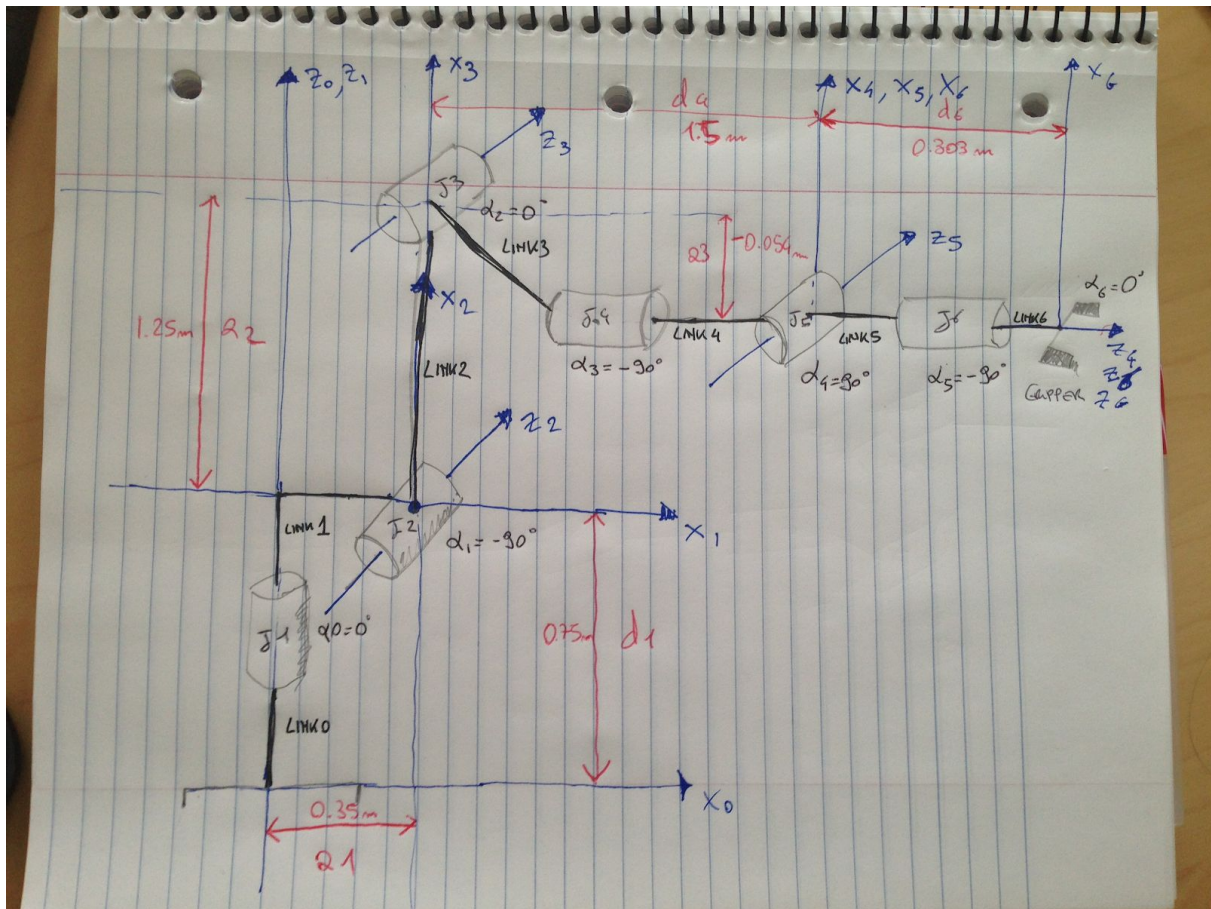 Z0, Z1
X3
d4
1.5m
X4, X5, X6
d6
0.303m
X6
Z3
J3
α2=0°
LINK3
a3
-0.054m
Z5
α6=0°
1.25m
a2
X2
J4
LINK4
J5
LINK5
J6
LINK6
Z4
Z6
α3=-90°
α4=90°
α5=-90°
GRIPPER
LINK2
Z2
LINK1
J2
α1=-90°
X1
J1
α0=0°
0.75m
d1
LINK0
0.35m
X0
a1